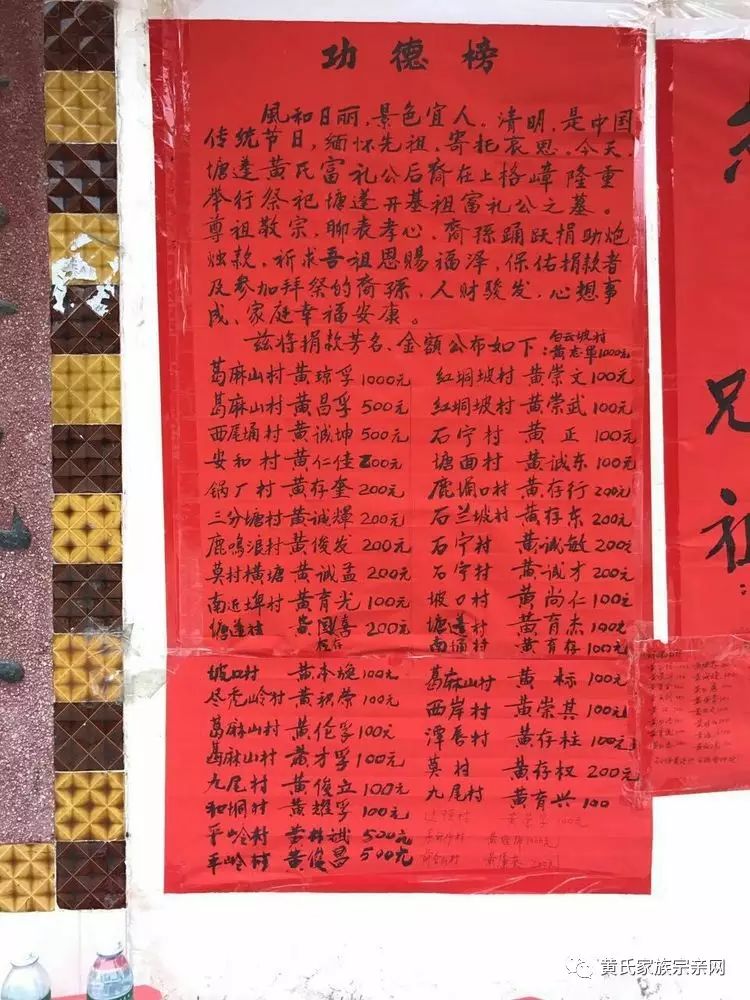 功德榜
風和日丽，景色宜人。清明，是中国
传统节日，缅怀先祖，寄托哀思。今天，
塘莲黄氏富礼公后裔在上格嶂隆重
举行祭祀塘莲开基祖富礼公之墓。
尊祖敬宗，聊表孝心，裔孫踊跃捐助炮
烛款，祈求吾祖恩赐福泽，保佑捐款者
及参加拜祭的裔孫，人财骏发，心想事
成、家庭幸福安康。
兹将捐款芳名、金额公布如下：
白云坡村
黄志軍1000元
葛麻山村 黄琼孚 1000元
葛麻山村 黄昌孚 500元
西尾埇村 黄诚坤 500元
安和村 黄仁佳 200元
锅厂村 黄存奎 200元
三分塘村 黄诚輝 200元
鹿鳴浪村 黄俊发 200元
莫村横塘 黄诚孟 200元
南近埤村 黄育光 100元
塘莲村 黄国喜 200元
坡口村 黄本 100元
冬虎岭村 黄积荣 100元
葛麻山村 黄伦孚 100元
葛麻山村 黄才孚 100元
九尾村 黄俊立 100元
和垌村 黄耀孚 100元
平岭村 黄林诚 500元
平岭村 黄俊昌 500元
红垌坡村 黄崇文 100元
红垌坡村 黄崇武 100元
石宁村 黄正 100元
塘面村 黄诚东 100元
鹿埇口村 黄存行 200元
石兰坡村 黄存东 200元
石宁村 黄诚敏 200元
石宁村 黄诚才 200元
坡口村 黄尚仁 100元
塘莲村 黄育杰 100元
南埇村 黄育存 100元
葛麻山村 黄标 100元
西岸村 黄崇其 100元
潭唇村 黄存柱 100元
莫村 黄存权 200元
九尾村 黄育兴 100
兄
祖
黄氏家族宗亲网